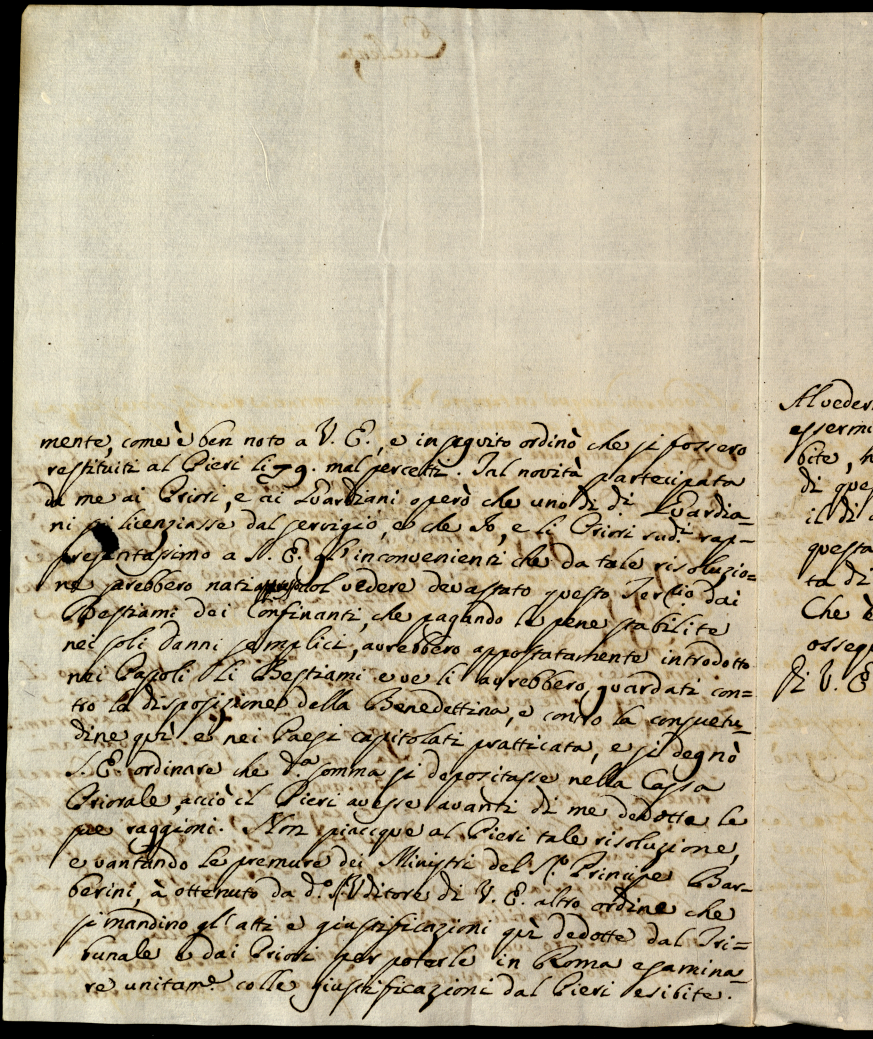 mente, come è ben noto a V. E., e in seguito ordinò che si fossero
restituiti al Pieri li 39. mal percetti. Tal novità partecipata
da me ai Priori, e ai Guardiani operò che uno di di Guardia=
ni si licenziasse dal servigio, e che Io, e li Priori sudi. rap=
presentassimo a S. E. gl'inconvenienti che da tale risoluzio=
ne sarebbero nati col vedere devastato questo Terrio dai
Bestiami dei Confinanti, che pagando le pene stabilite
nei soli danni semplici, avrebbero appostatamente introdotto
nei Pascoli li Bestiami e ve li avrebbero guardati con=
tro la disposizione della Benedettina, e contro la consuetu=
dine quì e nei Paesi capitolati pratticata, e si degnò
S. E. ordinare che da. somma si depositasse nella Cassa
Priorale, acciò il Pieri avesse avanti di me dedotte le
sue raggioni. Non piacque al Pieri tale risoluzione,
e vantando le premure dei Ministri del Sr. Principe Bar=
berini, à ottenuto da do. Sr. Uditore di V. E. altro ordine che
si mandino gl'atti e giustificazioni quì dedotte dal Tri=
bunale e dai Priori per poterle in Roma esamina=
re unitame. colle giustificazioni dal Pieri esibite.
Al veder
essermi
bite,
di ques
il di
questa
ta di
Che è
osseq
Di V. E